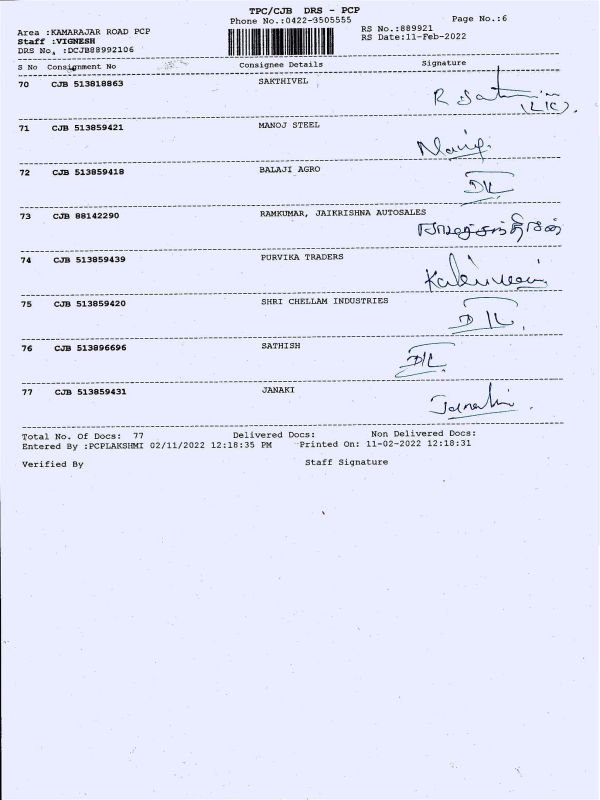 TPC/CJB DRS - PCP
Phone No.:0422-3505555
Page No.:6
Area :KAMARAJAR ROAD PCP
RS No.:889921
Staff :VIGNESH
RS Date:11-Feb-2022
DRS No. :DCJB88992106
S No Consignment No Consignee Details Signature
70 CJB 513818863 SAKTHIVEL
(LIC).
71 CJB 513859421 MANOJ STEEL
72 CJB 513859418 BALAJI AGRO
73 CJB 88142290 RAMKUMAR, JAIKRISHNA AUTOSALES
74 CJB 513859439 PURVIKA TRADERS
75 CJB 513859420 SHRI CHELLAM INDUSTRIES
76 CJB 513896696 SATHISH
77 CJB 513859431 JANAKI Janaki.
Total No. Of Docs: 77 Delivered Docs: Non Delivered Docs:
Entered By :PCPLAKSHMI 02/11/2022 12:18:35 PM Printed On: 11-02-2022 12:18:31
Verified By Staff Signature